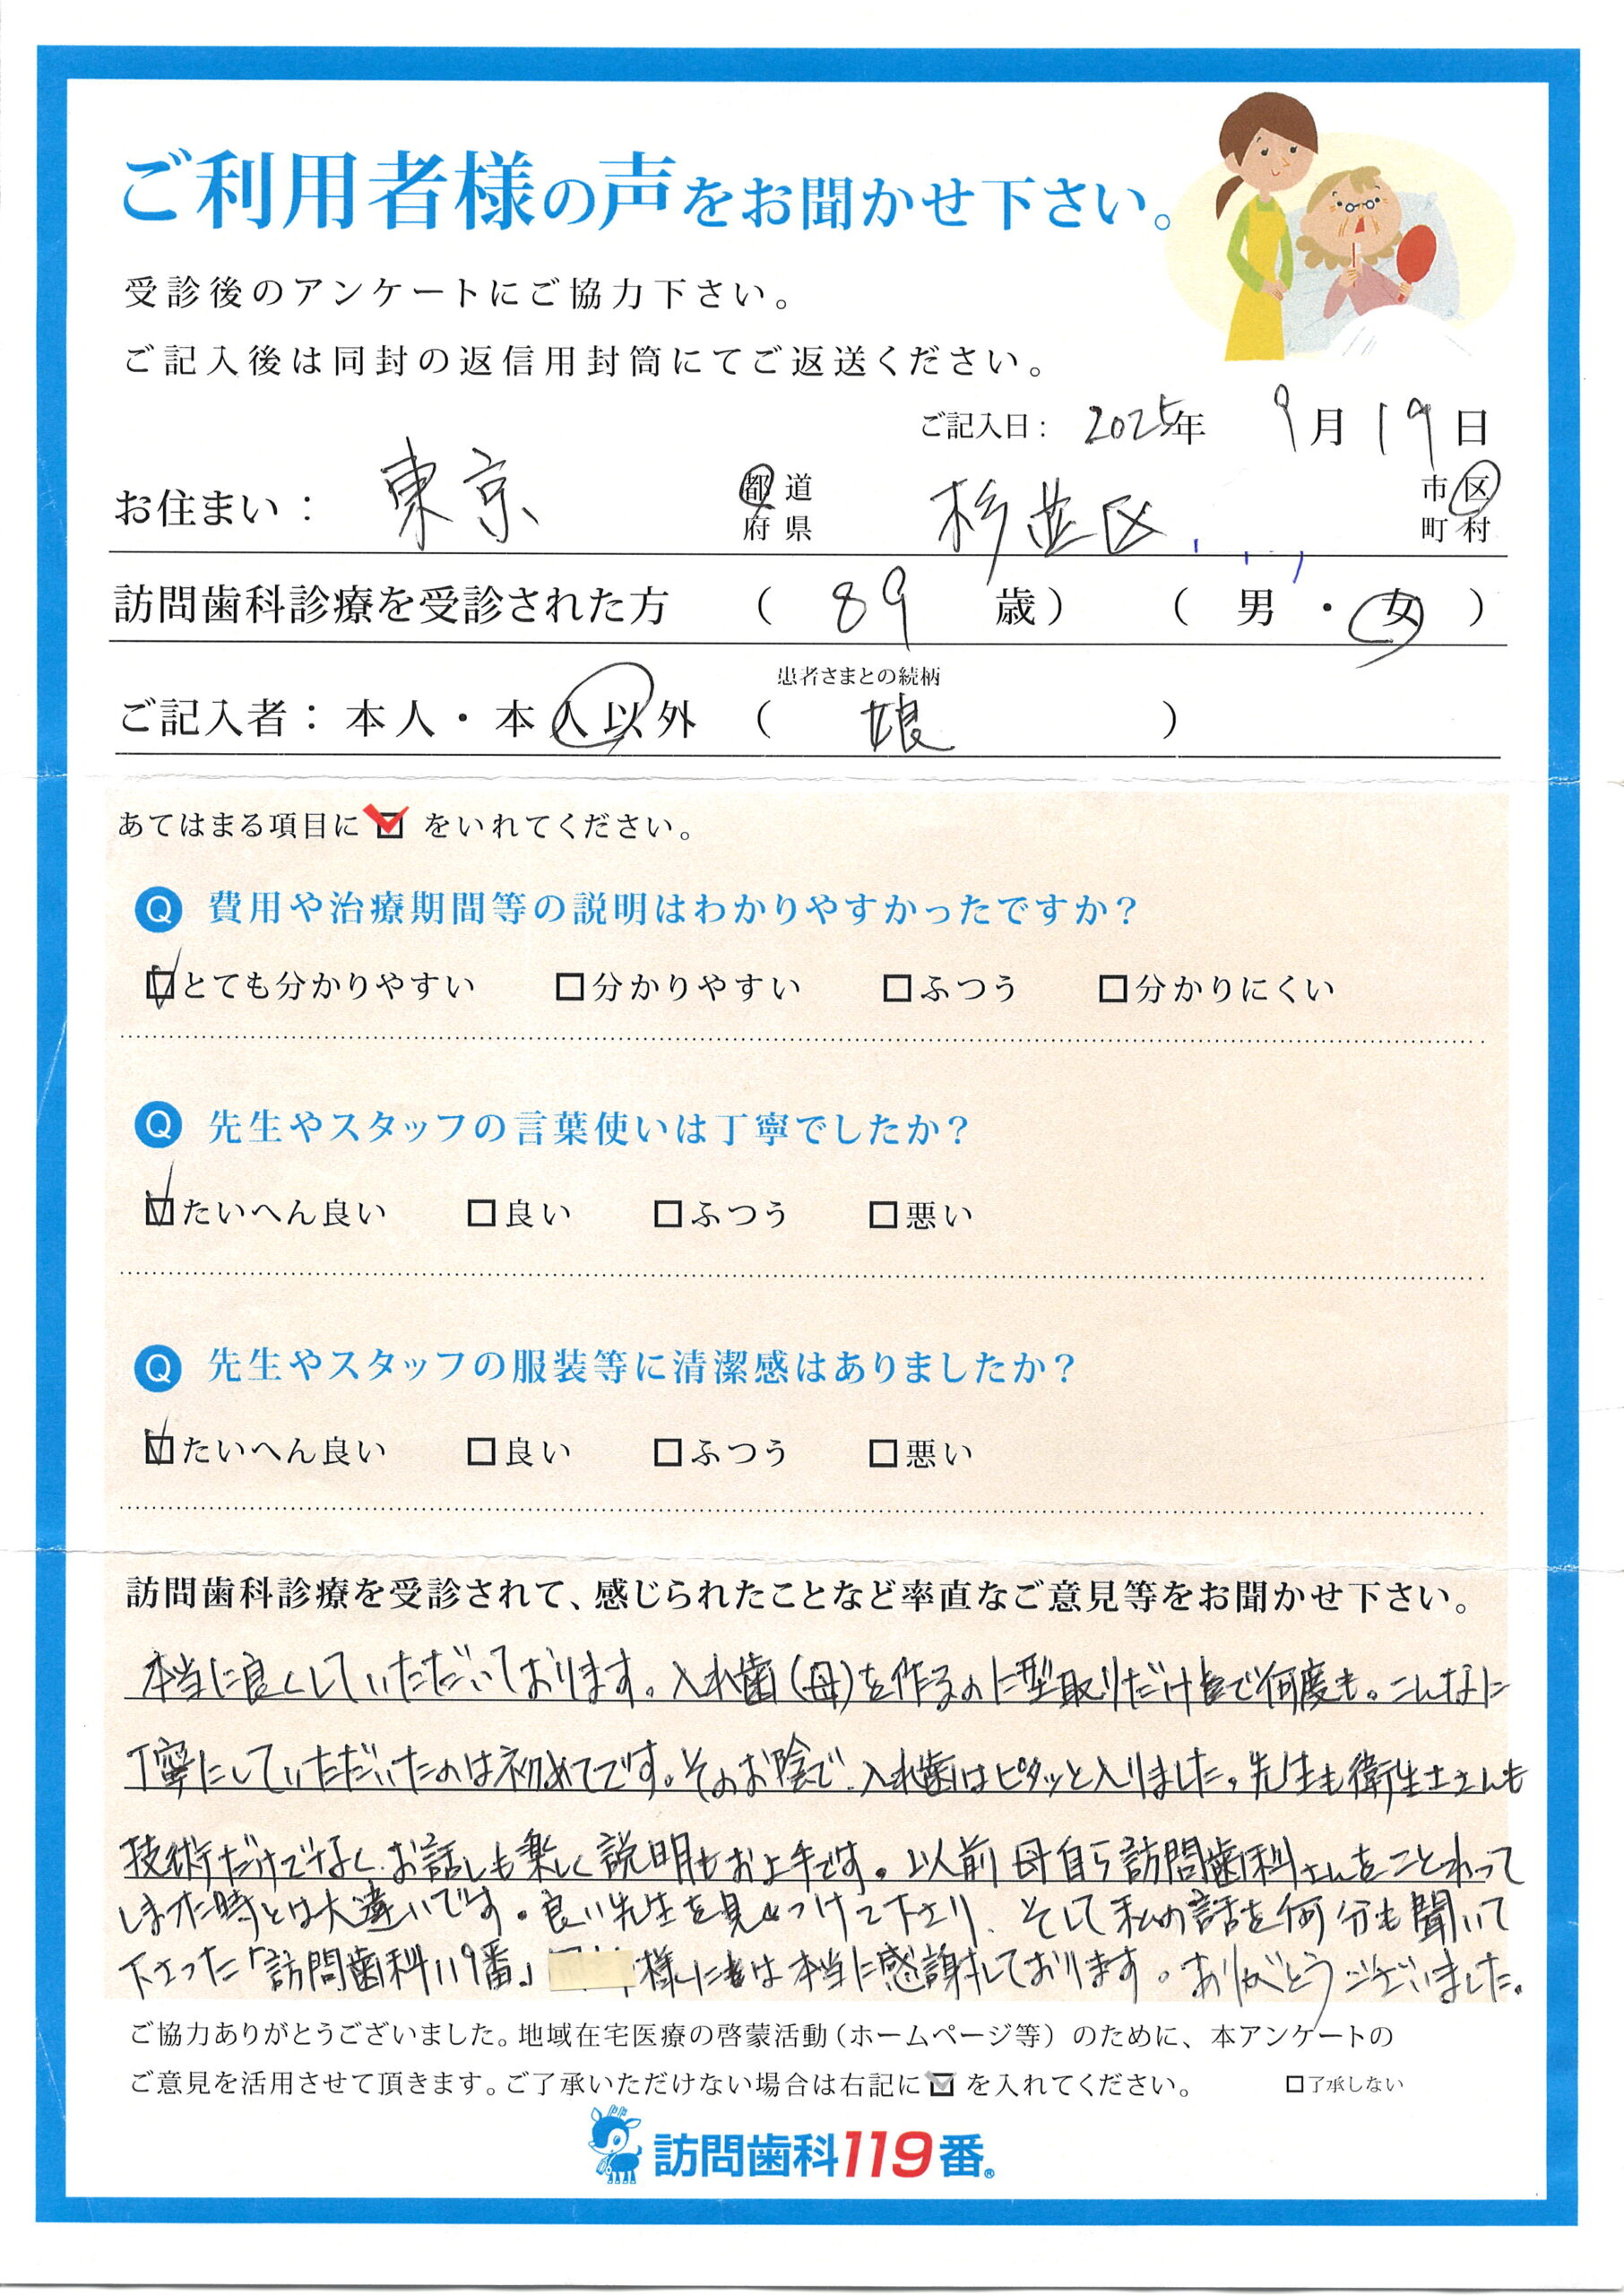 ご利用者様の声をお聞かせ下さい。
受診後のアンケートにご協力下さい。
ご記入後は同封の返信用封筒にてご返送ください。
ご記入日: 2025年 9月19日
お住まい: 東京 都道府県 杉並区 市区町村
訪問歯科診療を受診された方 (89 歳) (男・女)
患者さまとの続柄
ご記入者:本人・本人以外 (娘)
あてはまる項目に をいれてください。
Q 費用や治療期間等の説明はわかりやすかったですか?
とても分かりやすい 分かりやすい ふつう 分かりにくい
Q 先生やスタッフの言葉使いは丁寧でしたか?
たいへん良い 良い ふつう 悪い
Q 先生やスタッフの服装等に清潔感はありましたか?
たいへん良い 良い ふつう 悪い
訪問歯科診療を受診されて、感じられたことなど率直なご意見等をお聞かせ下さい。
本当に良くしていただいております。入れ歯(母)を作るのに型取りだけで何度も。こんなに
丁寧にしていただいたのは初めてです。そのお陰で、入れ歯はピタッと入りました。先生も衛生士さんも
技術だけでなく、お話しも楽しく説明もお上手です。以前母自ら訪問歯科さんをことわって
しまった時とは大違いです。良い先生を見つけて下さり、そして私の話を何分も聞いて
下さった「訪問歯科119番」 様には本当に感謝しております。ありがとうございました。
ご協力ありがとうございました。地域在宅医療の啓蒙活動(ホームページ等)のために、本アンケートの
ご意見を活用させて頂きます。ご了承いただけない場合は右記に を入れてください。 了承しない
訪問歯科119番®